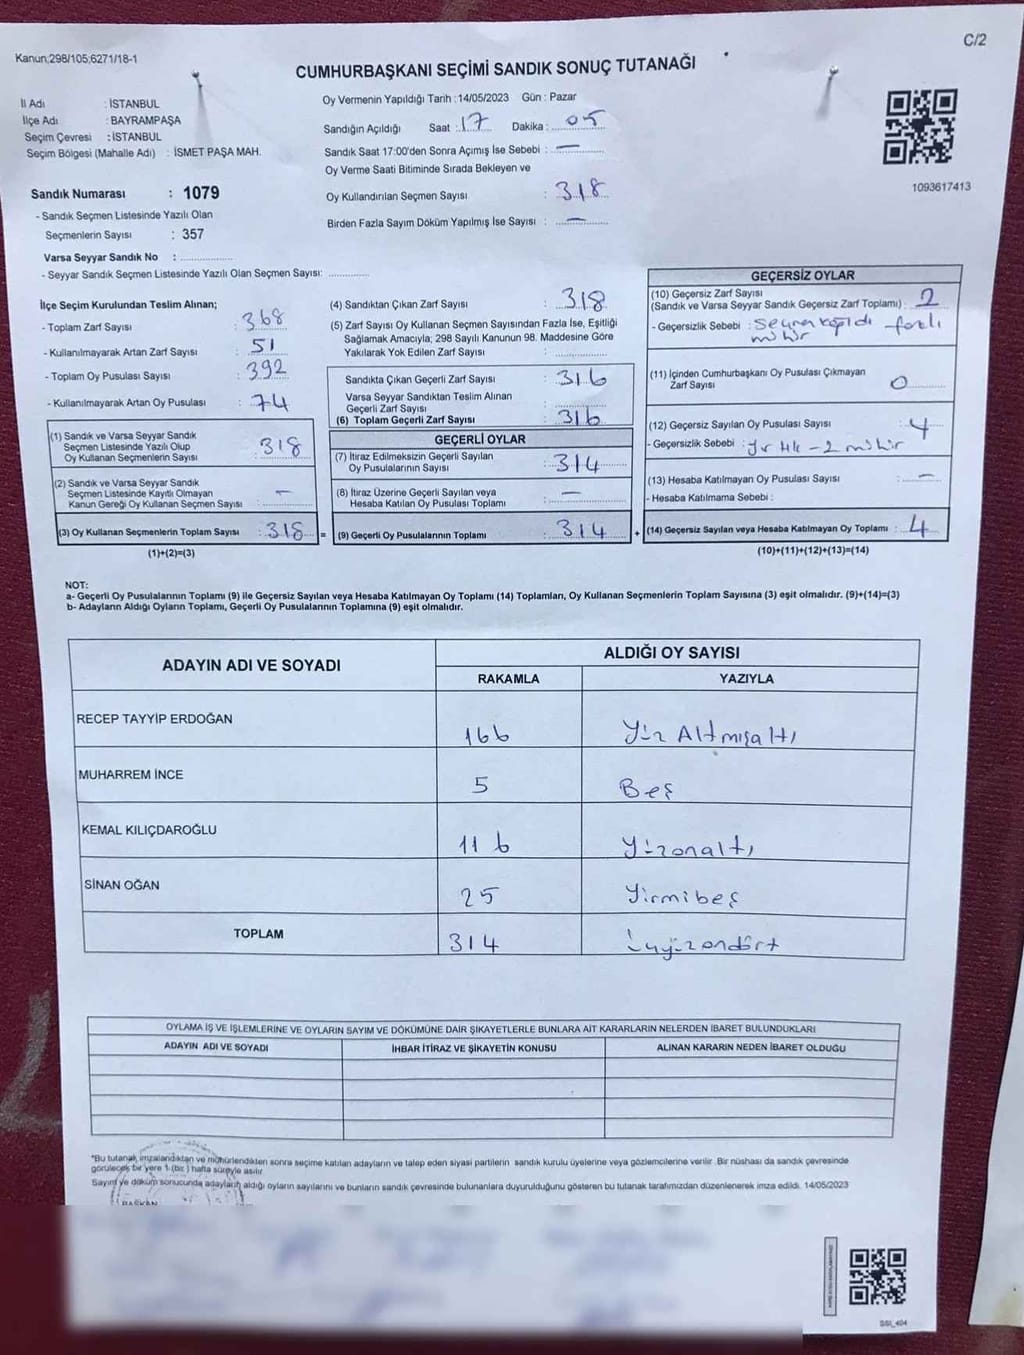 Kanun;298/105;6271/18-1
C/2
CUMHURBAŞKANI SEÇİMİ SANDIK SONUÇ TUTANAĞI
İl Adı : İSTANBUL
İlçe Adı : BAYRAMPAŞA
Seçim Çevresi : İSTANBUL
Seçim Bölgesi (Mahalle Adı) : İSMET PAŞA MAH.
Sandık Numarası : 1079
- Sandık Seçmen Listesinde Yazılı Olan
Seçmenlerin Sayısı : 357
Varsa Seyyar Sandık No :
- Seyyar Sandık Seçmen Listesinde Yazılı Olan Seçmen Sayısı:
Oy Vermenin Yapıldığı Tarih : 14/05/2023 Gün : Pazar
Sandığın Açıldığı Saat : 17 Dakika : 05
Sandık Saat 17:00'den Sonra Açımış İse Sebebi : —
Oy Verme Saati Bitiminde Sırada Bekleyen ve
Oy Kullandırılan Seçmen Sayısı : 318
Birden Fazla Sayım Döküm Yapılmış İse Sayısı : —
1093617413
İlçe Seçim Kurulundan Teslim Alınan;
- Toplam Zarf Sayısı : 368
- Kullanılmayarak Artan Zarf Sayısı : 51
- Toplam Oy Pusulası Sayısı : 392
- Kullanılmayarak Artan Oy Pusulası : 74
(1) Sandık ve Varsa Seyyar Sandık
Seçmen Listesinde Yazılı Olup
Oy Kullanan Seçmenlerin Sayısı : 318
(2) Sandık ve Varsa Seyyar Sandık
Seçmen Listesinde Kayıtlı Olmayan
Kanun Gereği Oy Kullanan Seçmen Sayısı : —
(3) Oy Kullanan Seçmenlerin Toplam Sayısı : 318 =
(1)+(2)=(3)
(4) Sandıktan Çıkan Zarf Sayısı : 318
(5) Zarf Sayısı Oy Kullanan Seçmen Sayısından Fazla İse, Eşitliği
Sağlamak Amacıyla; 298 Sayılı Kanunun 98. Maddesine Göre
Yakılarak Yok Edilen Zarf Sayısı :
Sandıkta Çıkan Geçerli Zarf Sayısı : 316
Varsa Seyyar Sandıktan Teslim Alınan
Geçerli Zarf Sayısı :
(6) Toplam Geçerli Zarf Sayısı : 316
GEÇERLİ OYLAR
(7) İtiraz Edilmeksizin Geçerli Sayılan
Oy Pusulalarının Sayısı : 314
(8) İtiraz Üzerine Geçerli Sayılan veya
Hesaba Katılan Oy Pusulası Toplamı : —
(9) Geçerli Oy Pusulalarının Toplamı : 314 +
GEÇERSİZ OYLAR
(10) Geçersiz Zarf Sayısı
(Sandık ve Varsa Seyyar Sandık Geçersiz Zarf Toplamı) : 2
- Geçersizlik Sebebi : fazla
mühür
(11) İçinden Cumhurbaşkanı Oy Pusulası Çıkmayan
Zarf Sayısı 0
(12) Geçersiz Sayılan Oy Pusulası Sayısı : 4
- Geçersizlik Sebebi : Yırtık - 2 mühür
(13) Hesaba Katılmayan Oy Pusulası Sayısı : —
- Hesaba Katılmama Sebebi :
(14) Geçersiz Sayılan veya Hesaba Katılmayan Oy Toplamı : 4
(10)+(11)+(12)+(13)=(14)
NOT:
a- Geçerli Oy Pusulalarının Toplamı (9) ile Geçersiz Sayılan veya Hesaba Katılmayan Oy Toplamı (14) Toplamları, Oy Kullanan Seçmenlerin Toplam Sayısına (3) eşit olmalıdır. (9)+(14)=(3)
b- Adayların Aldığı Oyların Toplamı, Geçerli Oy Pusulalarının Toplamına (9) eşit olmalıdır.
ADAYIN ADI VE SOYADI
ALDIĞI OY SAYISI
RAKAMLA YAZIYLA
RECEP TAYYİP ERDOĞAN 166 Yüz Altmışaltı
MUHARREM İNCE 5 Beş
KEMAL KILIÇDAROĞLU 116 Yüzonaltı
SİNAN OĞAN 25 Yirmibeş
TOPLAM 314 Üçyüzondört
OYLAMA İŞ VE İŞLEMLERİNE VE OYLARIN SAYIM VE DÖKÜMÜNE DAİR ŞİKAYETLERLE BUNLARA AİT KARARLARIN NELERDEN İBARET BULUNDUKLARI
ADAYIN ADI VE SOYADI İHBAR İTİRAZ VE ŞİKAYETİN KONUSU ALINAN KARARIN NEDEN İBARET OLDUĞU
*Bu tutanak imzalandıktan ve mühürlendikten sonra seçime katılan adayların ve talep eden siyasi partilerin sandık kurulu üyelerine veya gözlemcilerine verilir. Bir nüshası da sandık çevresinde
görülecek bir yere 1 (bir) hafta süreyle asılır.
Sayım ve döküm sonucunda adayların aldığı oyların sayılarını ve bunların sandık çevresinde bulunanlara duyurulduğunu gösteren bu tutanak tarafımızdan düzenlenerek imza edildi. 14/05/2023
BAŞKAN
SSI_404